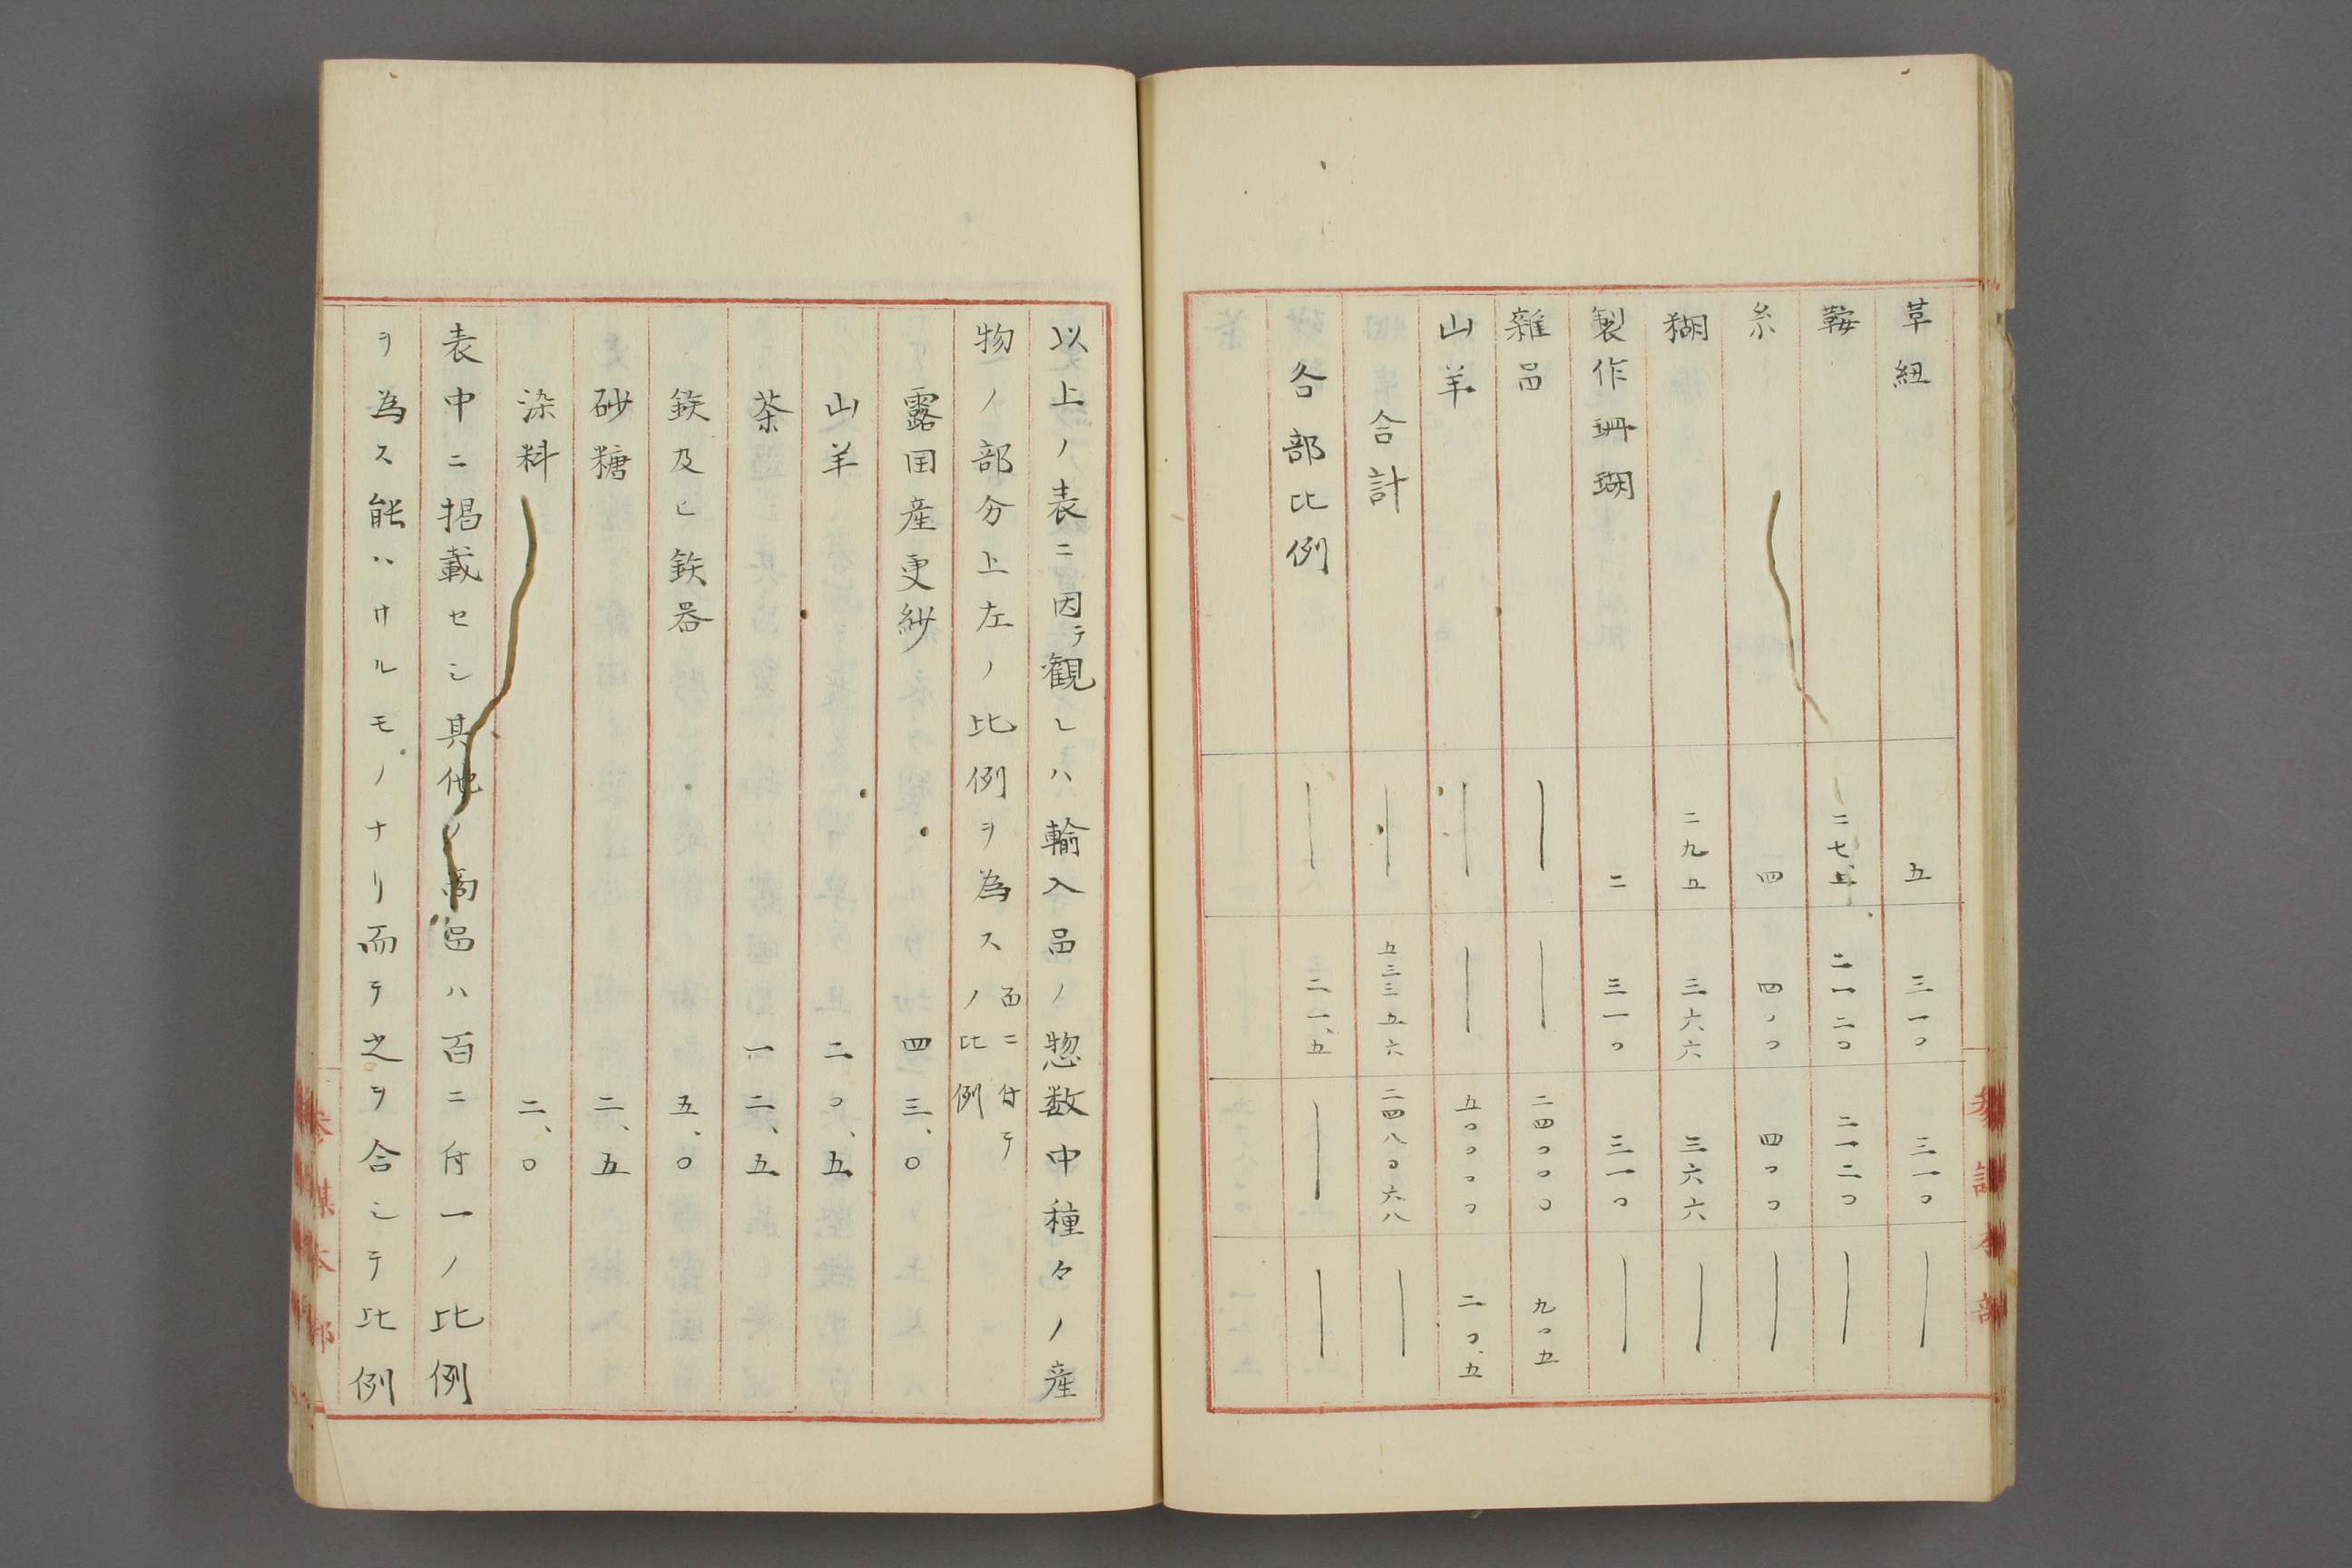 草紐 五 三一〇 三一〇 ｜
鞍 二七、五 二一二〇 二一二〇 ｜
糸 四 四〇〇 四〇〇 ｜
糊 二九五 三六六 三六六 ｜
製作珊瑚 二 三一〇 三一〇 ｜
雜品 ｜ ｜ 二四〇〇〇 九〇五
山羊 ｜ ｜ 五〇〇〇〇 二〇、五
合計 ｜ 五三三五六 二四八〇六八 ｜
各部比例 ｜ 二一、五 ｜ ｜
以上ノ表ニ因テ観レハ輸入品ノ惣数中種々ノ産
物ノ部分上左ノ比例ヲ為ス 百ニ付テノ比例
露国産更紗 四三、〇
山羊 二〇、五
茶 一二、五
鉄及ヒ鉄器 五、〇
砂糖 二、五
染料 二、〇
表中ニ掲載セシ其他ノ商品ハ百ニ付一ノ比例
ヲ為ス能ハサルモノナリ而テ之ヲ合シテ比例
參謀本部